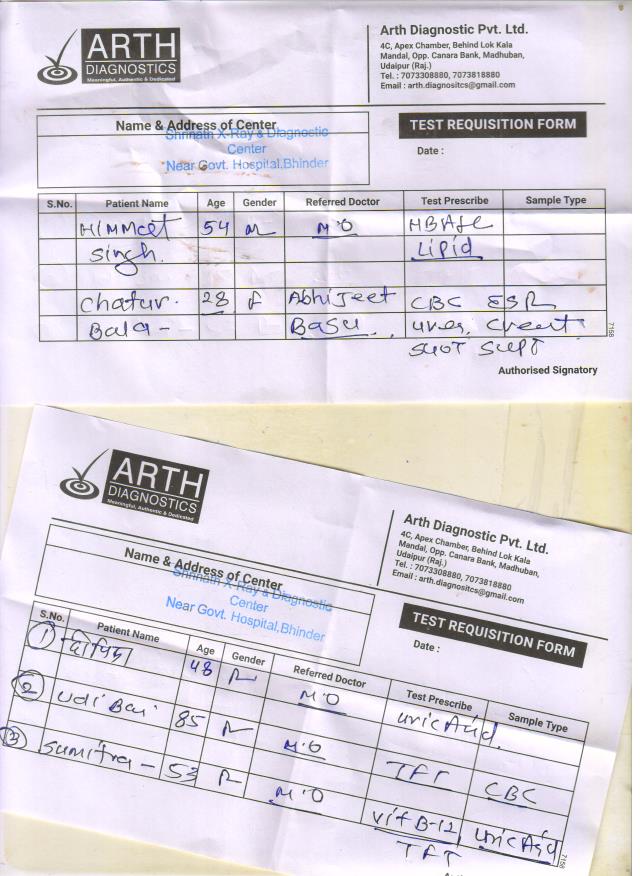 ARTH
DIAGNOSTICS
Meaningful, Authentic & Dedicated
Arth Diagnostic Pvt. Ltd.
4C, Apex Chamber, Behind Lok Kala
Mandal, Opp. Canara Bank, Madhuban,
Udaipur (Raj.)
Tel. : 7073308880, 7073818880
Email : arth.diagnositcs@gmail.com
Name & Address of Center
Shrinath X-Ray & Diagnostic
Center
Near Govt. Hospital,Bhinder
TEST REQUISITION FORM
Date :
S.No. Patient Name Age Gender Referred Doctor Test Prescribe Sample Type
54 M.O HBA1c
Singh. Lipid
Chatur. 28 F Abhijeet CBC ESR
Bala - Basu
SGOT SGPT
7158
Authorised Signatory
ARTH
DIAGNOSTICS
Meaningful, Authentic & Dedicated
Arth Diagnostic Pvt. Ltd.
4C, Apex Chamber, Behind Lok Kala
Mandal, Opp. Canara Bank, Madhuban,
Udaipur (Raj.)
Tel. : 7073308880, 7073818880
Email : arth.diagnositcs@gmail.com
Name & Address of Center
Shrinath X-Ray & Diagnostic
Center
Near Govt. Hospital,Bhinder
TEST REQUISITION FORM
Date :
S.No. Patient Name Age Gender Referred Doctor Test Prescribe Sample Type
1 48 M.O uric Acid
2 Udi Bai 85 M.O TFT CBC
3 Sumitra - 53 M.O Vit B-12, uric Acid
TFT
7158